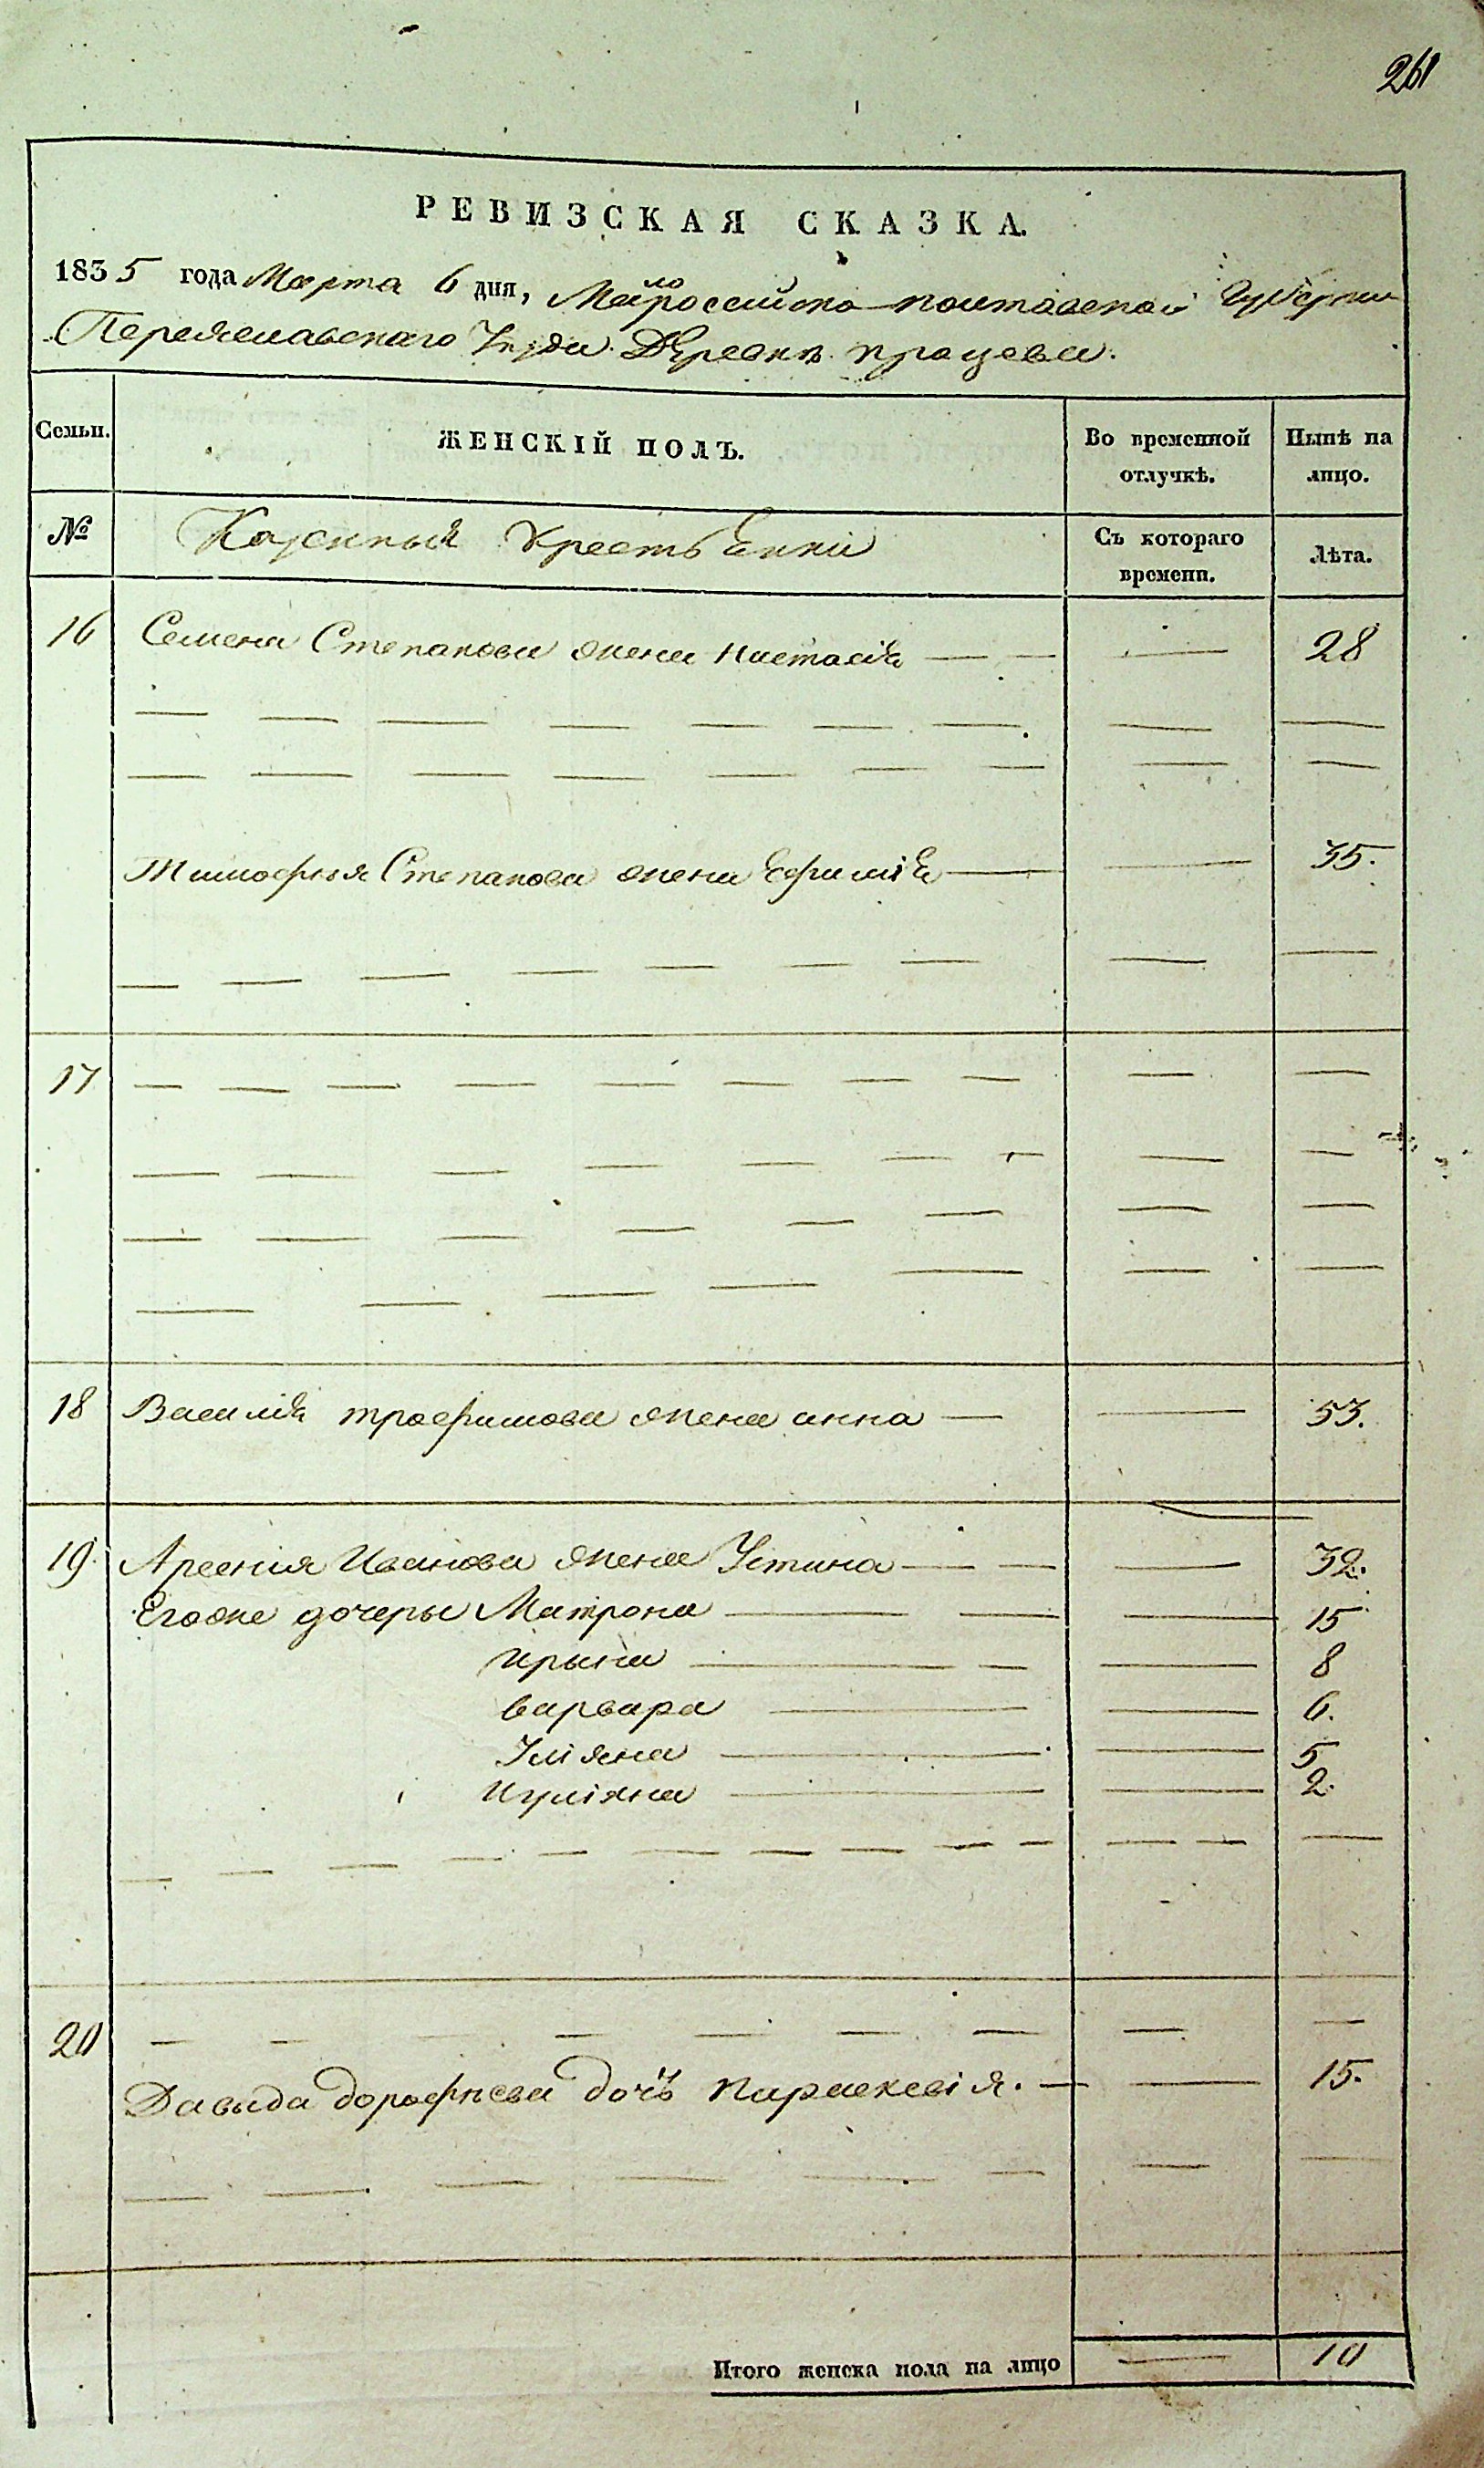 261
РЕВИЗСКАЯ СКАЗКА.
1835 года Марта 6 дня, Малороссийско полтавской Губернии
Переяславскаго Уезда Деревни процевы.
Семьи. ЖЕНСКІЙ ПОЛЪ. Во временной отлучкѣ. Нынѣ на лицо.
№ Казенныя крестьЕнки Съ котораго времени. Лѣта.
16 Семена Степанова жена настасія — — — 28
Тимофѣя Степанова жена Ефимія — — 35.
17
18 Василія трофимова жена анна — — 53.
19. Арсенія Иванова жена Устина — — — 32.
Егоже дочеры Матрона — — — 15
ирына — — — 8
варвара — — 6.
Уліяна — — 5
иуліяна — — 2.
20
Давыда дорофѣева дочь параскевія. — — 15.
Итого женска пола на лицо — 10